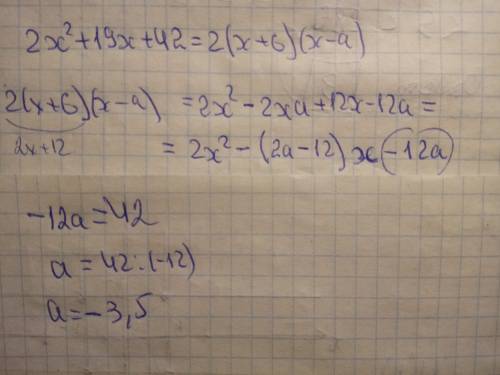 2x²+19x+42=2(x+6)(x-a)
2(x+6)(x-a) =2x²-2xa+12x-12a=
2x+12 =2x²-(2a-12)x-12a
-12a=42
a=42:(-12)
a=-3,5